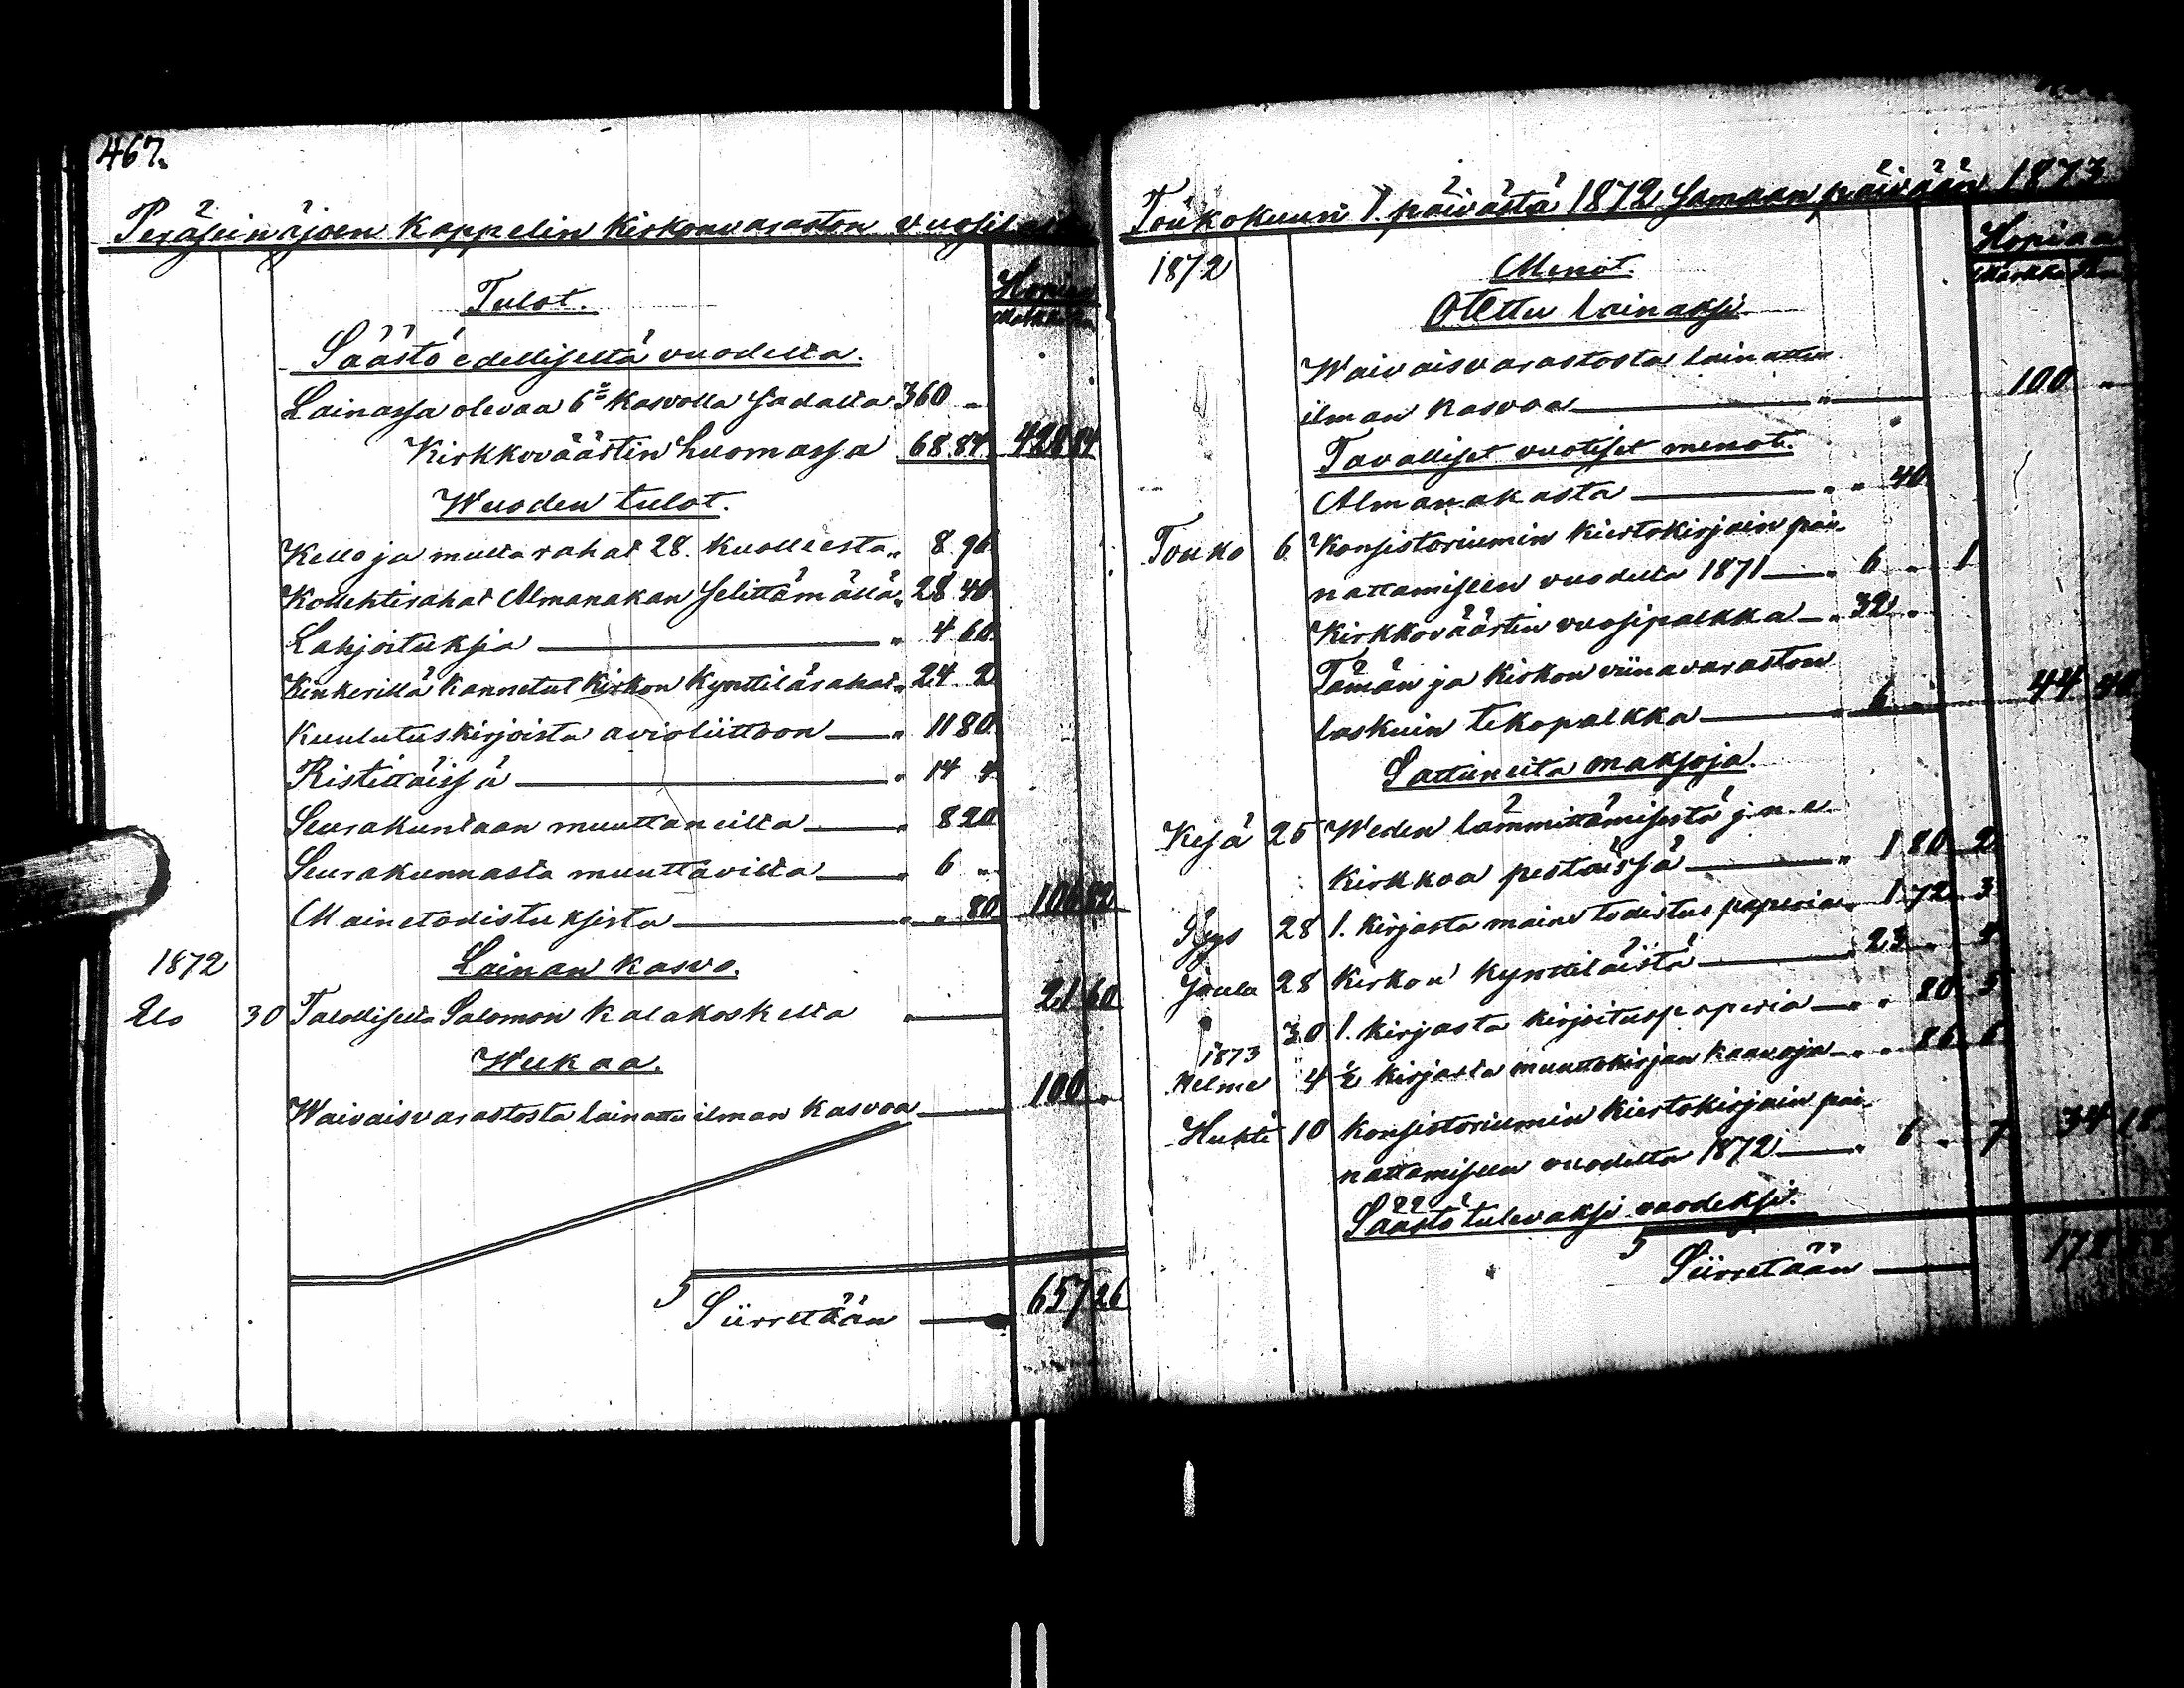 467.
Peräseinäjoen Kappelin Kirkonvaraston vuosilasku
Hopiaa
Tulot.
Säästö edelliseltä vuodelta.
Lainassa olevaa 6 % kasvolla sadalta 360 "
Kirkkoväärtin huomassa 68 84 428 84
Wuoden tulot.
Kello ja multa rahat 28. kuolleesta " 8 96
Kollehtirahat Almanakan selittämällä " 28 40
Lahjoituksia " 4 60
Kinkerillä kannetut Kirkon Kynttilärahat " 24 2
Kuulutuskirjoista avioliittoon " 11 80
Ristittäissä " 14 4
Seurakuntaan muuttaneilta " 8 20
Seurakunnasta muuttavilta " 6 "
Mainetodistuksista " " 80 106 82
1872 Lainan kasvo.
Elo 30 Talolliselta Salomon Kalakoskelta " 21 60
Wekaa.
Waivaisvarastosta lainattu ilman kasvoa 100 "
S Siirretään 657 26
Toukokuun 1. päivästä 1872 samaan päivään 1873
Hopiaa
1872 Menot.
Markkaa
Otettu lainaksi
Waivaisvarastosta lainattu
ilman kasvoa " 100 "
Tavalliset vuotiset menot.
Almanakasta " " 40
Touko 6 Konsistoriumin kiertokirjain pai-
nattamiseen vuodelta 1871 " 6 " 1
Kirkkoväärtin vuosipalkka " 32 "
Tämän ja kirkon viinavaraston
laskuin tekopalkka " 6 " 44 40
Sattuneita maksoja.
Kesä 25 Weden lämmittämisestä j.n.e.
kirkkoa pestäissä " 1 80 2
Syys 28 1. kirjasta maine todistus paperia " 1 72 3
Joulu 28 Kirkon kynttilöistä " 23 " 4
" 30 1. kirjasta kirjoituspaperia " " 80 5
1873
Helme 4 ½ kirjasta muuttokirjan kaavoja " " 86 6
Huhti 10 Konsistoriumin kiertokirjain pai-
nattamiseen vuodelta 1872 " 6 " 7 34 18
Säästö tulevaksi vuodeksi.
S Siirretään 178